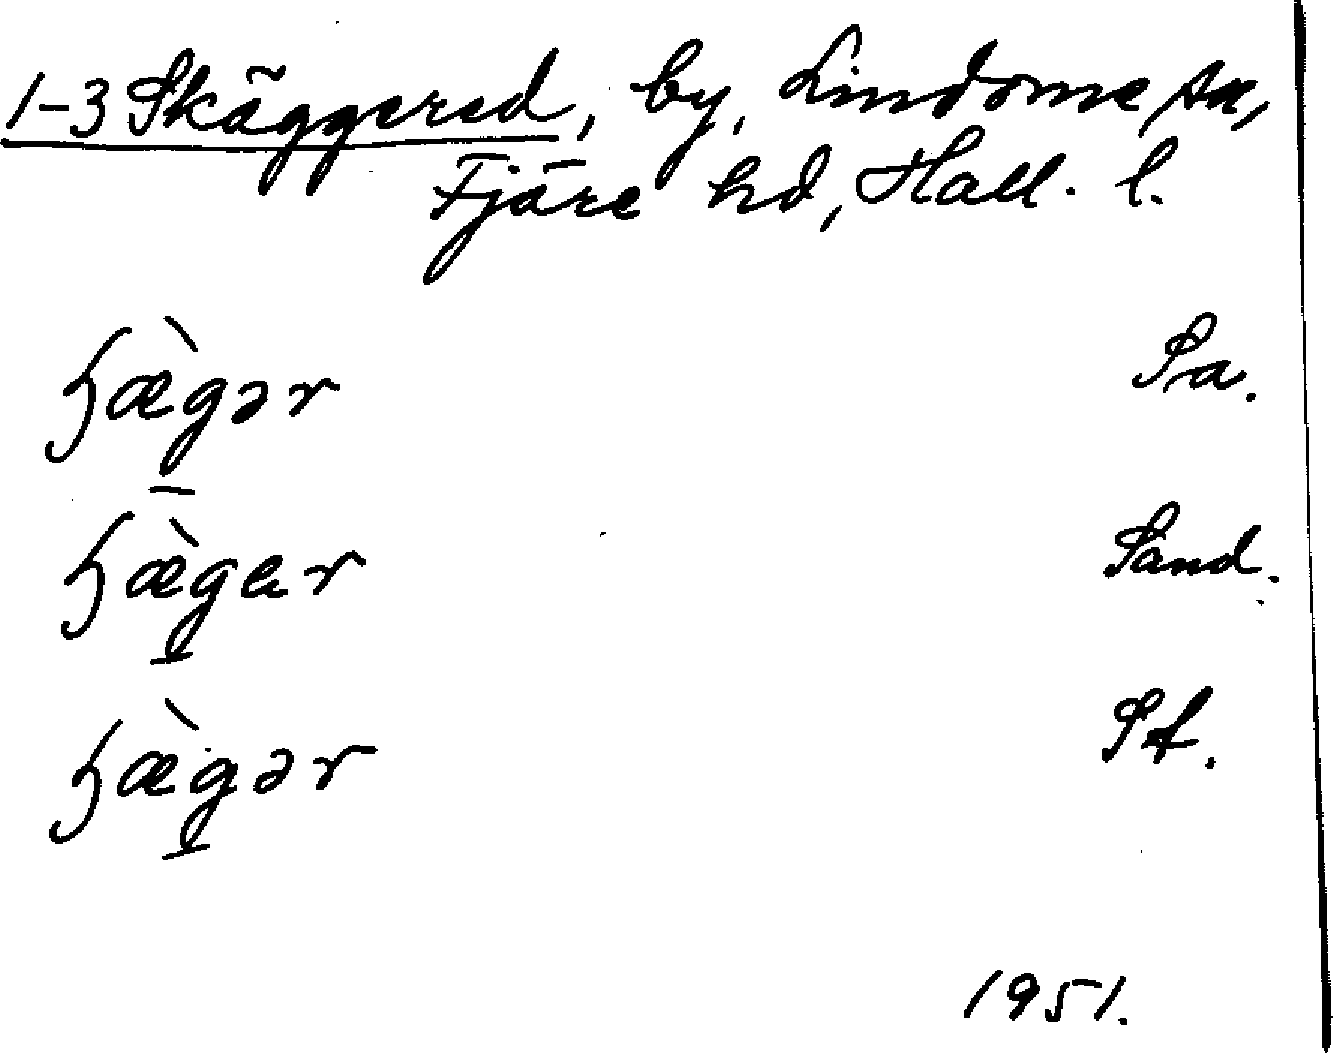 1-3 Skäggered, by, Lindome sn,
Fjäre hd, Hall. l.
ʃæ̀gər Sa.
ʃæ̀gar Sand.
ʃæ̀gər St.
1951.